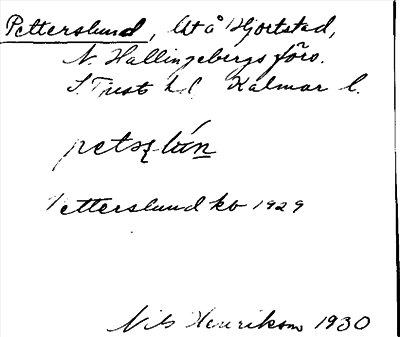 Petterslund, Ut å Hjortstad,
N. Hallingebergs förs.
S. Tjust hd. Kalmar l.
petsₑlún
Petterslund kb 1929
Nils Henrikson 1930